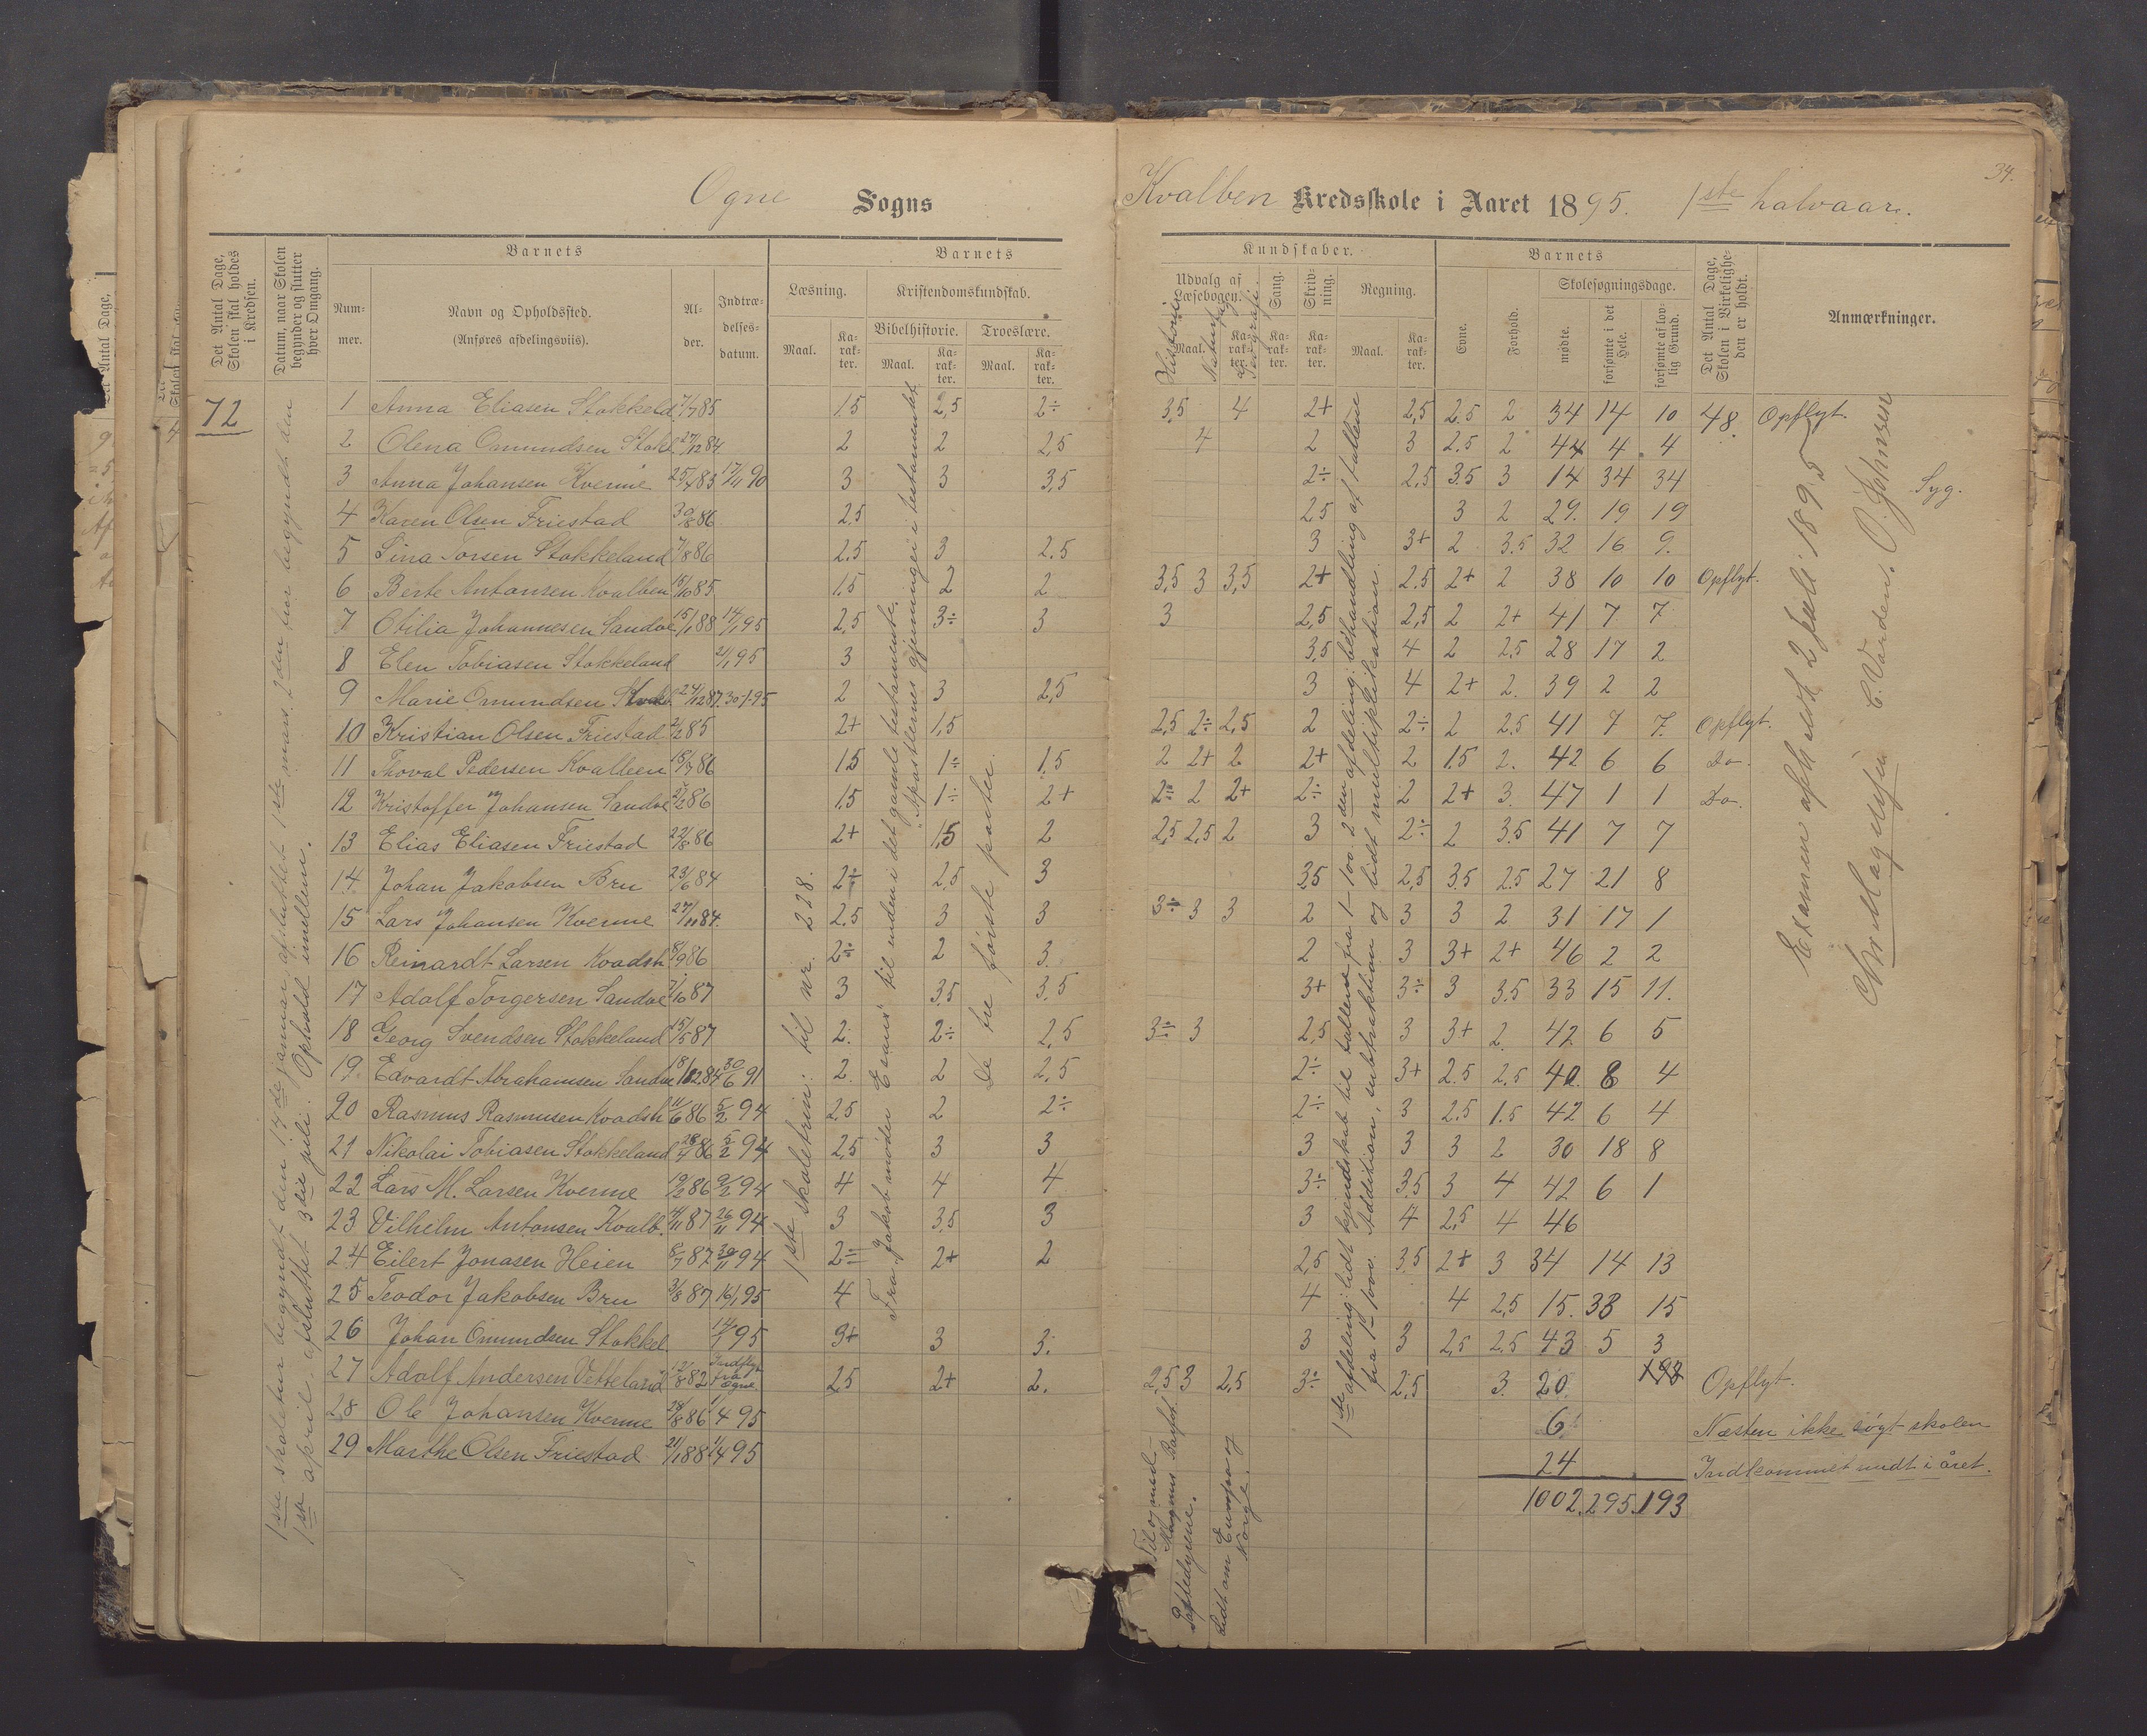 34.
Ogne Sogns Kvalben Kredsskole i Aaret 1895. 1ste halvaar.
Det Antal Dage, Skolen skal holdes i Kredsen.
Datum, naar Skolen begynder og slutter hver Omgang.
Barnets
Nummer.
Navn og Opholdssted.
(Anføres afdelingsviis).
Alder.
Indtrædelsesdatum.
Barnets
Læsning.
Maal.
Karakter.
Kristendomskundskab.
Bibelhistorie.
Maal.
Karakter.
Troeslære.
Maal.
Karakter.
Kundskaber.
Udvalg af Læsebogen.
Historie
Naturfag
Geografi.
Maal.
Karakter.
Sang.
Karakter.
Skrivning.
Karakter.
Regning.
Maal.
Karakter.
Barnets
Evne.
Forhold.
Skolesøgningsdage.
mødte.
forsømte i det Hele.
forsømte af lovlig Grund.
Det Antal Dage, Skolen i Virkeligheden er holdt.
Anmærkninger.
72
1ste skoletur begyndt den 17de januar, afsluttet 1ste mars. 2den tur begyndt den
1ste april, afsluttet 3die juli. Ophold imellem.
1 Anna Eliasen Stokkeld 7/7 85 1.5 2,5 2÷ 3,5 4 2+ 2,5 2.5 2 34 14 10 48 Opflyt.
2 Olena Omundsen Stokl 27/12 84 2 2 2,5 4 2 3 2.5 2 44 4 4
3 Anna Johansen Kverme 25/4 83 17/11 90 3 3 3,5 2÷ 2,5 3.5 3 14 34 34 Syg.
4 Karen Olsen Friestad 30/8 86 2.5 2,5 3 2 29. 19 19
5 Sina Torsen Stokkeland 7/8 86 2.5 3 2.5 3 3+ 2 3.5 32 16 9.
6 Berte Antonsen Kvalben 15/10 85 1.5 2 2 3,5 3 3,5 2+ 2.5 2+ 2 38 10 10 Opflyt.
7 Otilia Johannesen Sandve 15/1 88 14/1 95 2,5 3÷ 3 3 2,5 2,5 2 2+ 41 7 7
8 Elen Tobiasen Stokkeland 21/1 95 3 3,5 4 2 2.5 28 17 2
9 Marie Omundsen Stokl. 24/12 87. 30-1-95 2 3 2,5 3 4 2+ 2. 39 2 2
10 Kristian Olsen Friestad 2/2 85 2+ 1,5 2,5 2÷ 2,5 2 2÷ 2 2.5 41 7 7. Opflyt.
11 Thoval Pedersen Kvalben 15/7 86 1.5 1÷ 1.5 2 2+ 2 2+ 2 1.5 2. 42 6 6 Do.
12 Kristoffer Johansen Sandve 1,5 1÷ 2+ 2÷ 2 2+ 2÷ 2 2+ 3. 47 1 1 Do.
13 Elias Eliasen Friestad 22/8 86 2+ 1,5 2 2,5 2,5 2 3 2÷ 2 3.5 41 7 7
14 Johan Jakobsen Bru 23/6 84 2÷ 2,5 3 3,5 2,5 3.5 2.5 27 21 8
15 Lars Johansen Kverme 27/11 84. 2.5 3 3 3÷ 3 3 2 3 3 2 31 17 1
16 Reinardt Larsen Kvadsh 8/9 86 2÷ 2 3. 2 3 3+ 2+ 46 2 2
17 Adolf Torgersen Sandve 7/10 87 3 3.5 3.5 3+ 3÷ 3 3.5 33 15 11.
18 Georg Svendsen Stokkeland 15/5 87 2. 2÷ 2,5 3÷ 3 2,5 3 3+ 2. 42 6 5
19 Edvardt Abrahamsen Sandve 18/12 84 30/6 91 2. 2 2,5 2÷ 3+ 2.5 2,5 40. 8 4
20 Rasmus Rasmusen Kvadsh 11/6 86 5/2 94 2,5 2 2÷ 2÷ 3 2,5 1.5 42 6 4
21 Nikolai Tobiasen Stokkeland 28/4 86 5/2 94 2,5 3 3 3 3 3 2 30 18 8
22 Lars M. Larsen Kverme 19/2 86 9/2 94 4 4 4 3÷ 3.5 3 4 42 6 1
23 Vilhelm Antonsen Kvalb. 4/11 87 26/11 94 3 3.5 3 3 4 2,5 4 46
24 Eilert Jonasen Heien 8/7 87 30/11 94 2÷ 2+ 2 2,5 3.5 2+ 3 34 14 13
25 Teodor Jakobsen Bru 3/8 87 16/1 95 4 4 4 2,5 15. 33 15
26 Johan Omundsen Stokkel 14/1 95 3+ 3 3. 3 3 2,5 2,5 43 5 3
27 Adolf Andersen Vetteland 12/8 82 Indflyt fra Ogne 2,5 2+ 2. 2,5 3 2,5 3÷ 2,5 3. 20. 193 Opflyt.
28 Ole Johansen Kverme 28/8 86 1/4 95 6 Næsten ikke søgt skolen
29 Marthe Olsen Friestad 21/1 88 1/4 95 24 Indkommet midt i året.
1002. 295. 193
1ste skoletrin: til nr. 228.
Fra "Jakob møder Esau" til enden i det gamle testamente.
"Apostlernes gjerninger i testamentet
de tre første parter.
Til og med Magnus Barfot
Pattedyrene.
Lidt om Europa og Norge.
1ste afdeling: lidt kjendskab til tallene fra 1-100. 2den afdeling: behandling af tallene
fra 1-1000. Addition, subtraktion og lidt multiplikation.
Examen afholdt 2 juli 1895
Chr. Magnusen C. Varden. O. Johnsen